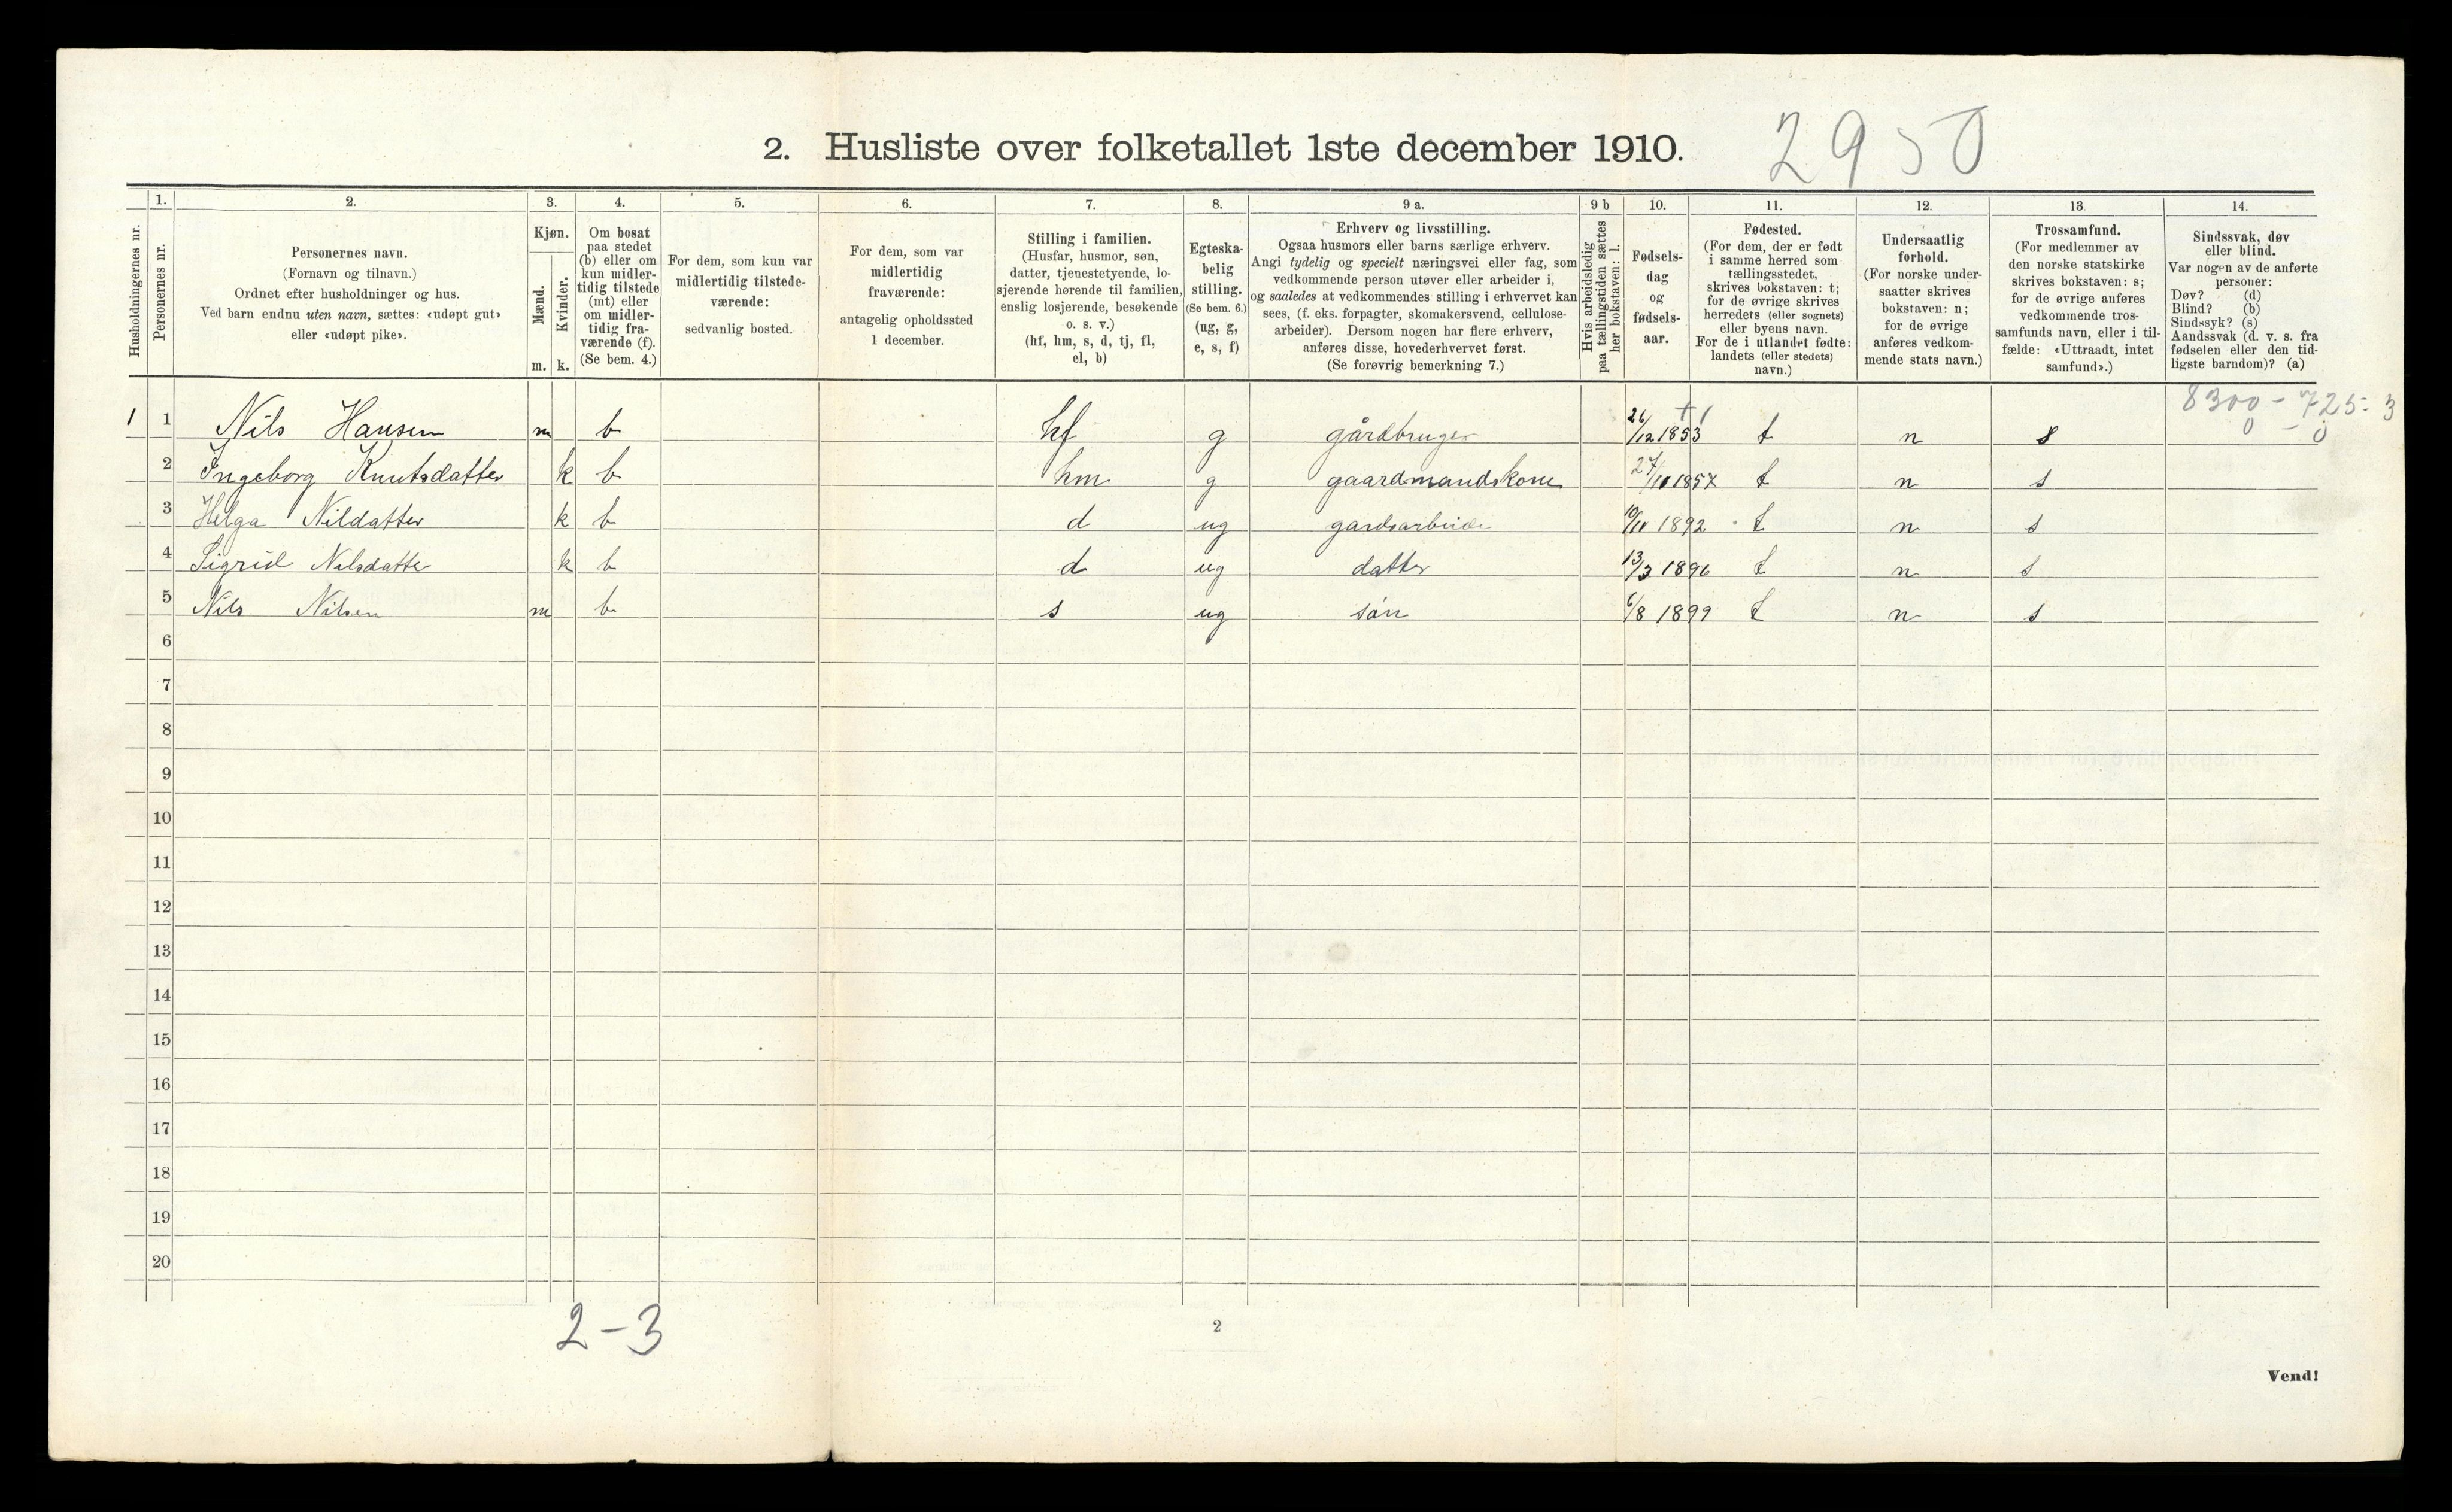 2. Husliste over folketallet 1ste december 1910.
2950
Husholdningernes nr.
1.
Personernes nr.
2.
Personernes navn.
(Fornavn og tilnavn.)
Ordnet efter husholdninger og hus.
Ved barn endnu uten navn, sættes: «udøpt gut»
eller «udøpt pike».
3.
Kjøn.
Mænd.
Kvinder.
m. k.
4.
Om bosat
paa stedet
(b) eller om
kun midler-
tidig tilstede
(mt) eller
om midler-
tidig fra-
værende (f).
(Se bem. 4.)
5.
For dem, som kun var
midlertidig tilstede-
værende:
sedvanlig bosted.
6.
For dem, som var
midlertidig
fraværende:
antagelig opholdssted
1 december.
7.
Stilling i familien.
(Husfar, husmor, søn,
datter, tjenestetyende, lo-
sjerende hørende til familien,
enslig losjerende, besøkende
o. s. v.)
(hf, hm, s, d, tj, fl,
el, b)
8.
Egteska-
belig
stilling.
(Se bem. 6.)
(ug, g,
e, s, f)
9 a.
Erhverv og livsstilling.
Ogsaa husmors eller barns særlige erhverv.
Angi tydelig og specielt næringsvei eller fag, som
vedkommende person utøver eller arbeider i,
og saaledes at vedkommendes stilling i erhvervet kan
sees, (f. eks. forpagter, skomakersvend, cellulose-
arbeider). Dersom nogen har flere erhverv,
anføres disse, hovederhvervet først.
(Se forøvrig bemerkning 7.)
9 b
Hvis arbeidsledig
paa tællingstiden sættes
her bokstaven: l.
10.
Fødsels-
dag
og
fødsels-
aar.
11.
Fødested.
(For dem, der er født
i samme herred som
tællingsstedet,
skrives bokstaven: t;
for de øvrige skrives
herredets (eller sognets)
eller byens navn.
For de i utlandet fødte:
landets (eller stedets)
navn.)
12.
Undersaatlig
forhold.
(For norske under-
saatter skrives
bokstaven: n;
for de øvrige
anføres vedkom-
mende stats navn.)
13.
Trossamfund.
(For medlemmer av
den norske statskirke
skrives bokstaven: s;
for de øvrige anføres
vedkommende tros-
samfunds navn, eller i til-
fælde: «Uttraadt, intet
samfund».)
14.
Sindssvak, døv
eller blind.
Var nogen av de anførte
personer:
Døv? (d)
Blind? (b)
Sindssyk? (s)
Aandssvak (d. v. s. fra
fødselen eller den tid-
ligste barndom)? (a)
8300 - 725 - 3
0 - 0
1 1 Nils Hansen m b hf g gårdbruger 26/12 1853 t n s
2 Ingeborg Knutsdatter k b hm g gaardmandskone 27/11 1857 t n s
3 Helga Nildatter k b d ug gardsarbeide 10/11 1892 t n s
4 Sigrid Nilsdatte k b d ug datter 13/3 1896 t n s
5 Nils Nilsen m b s ug sön 6/8 1899 t n s
6
7
8
9
10
11
12
13
14
15
16
17
18
19
20
2-3
2
Vend!